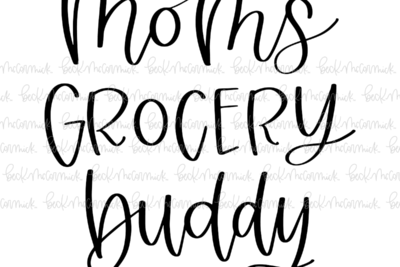 moms
GROCERY
buddy